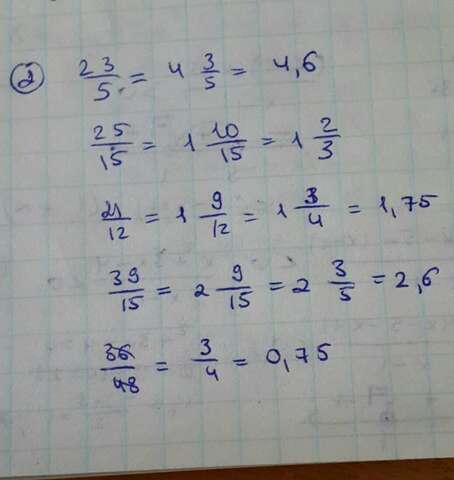 ② 23/5 = 4 3/5 = 4,6
25/15 = 1 10/15 = 1 2/3
21/12 = 1 9/12 = 1 3/4 = 1,75
39/15 = 2 9/15 = 2 3/5 = 2,6
36/48 = 3/4 = 0,75